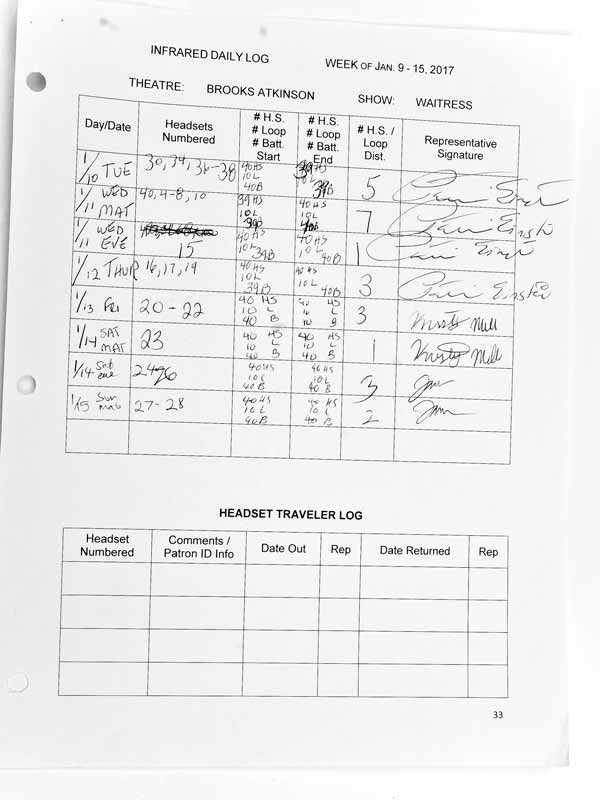 INFRARED DAILY LOG
WEEK OF JAN. 9 - 15, 2017
THEATRE: BROOKS ATKINSON SHOW: WAITRESS
Day/Date Headsets Numbered # H.S. # Loop # Batt. Start # H.S. # Loop # Batt. End # H.S. / Loop Dist. Representative Signature
1/10 TUE 30, 34, 36-38 40HS 10L 40B 39HS 10L 39B 5
1/11 WED MAT 40, 4-8, 10 39HS 10L 39B 40HS 10L 40B 7
1/11 WED EVE 15 40HS 10L 39B 40HS 10L 40B 1
1/12 THUR 16, 17, 19 40HS 10L 39B 40HS 10L 40B 3
1/13 FRI 20 - 22 40 HS 10 L 40 B 40 HS 10 L 40 B 3 Kristy Mill
1/14 SAT MAT 23 40 HS 10 L 40 B 40 HS 10 L 40 B 1 Kristy Mill
1/14 Sat eve 24-26 40HS 10L 40B 40HS 10L 40B 3
1/15 Sun mat 27-28 40HS 10L 40B 40 HS 10 L 40 B 2
HEADSET TRAVELER LOG
Headset Numbered Comments / Patron ID Info Date Out Rep Date Returned Rep
33